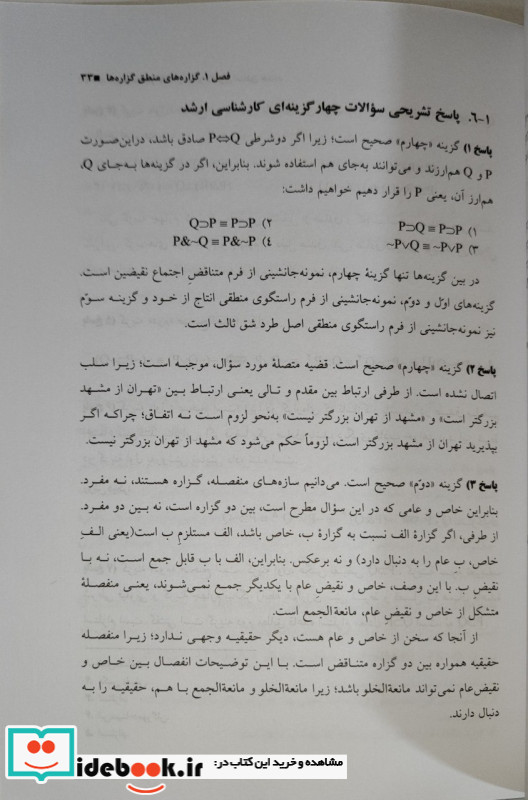 فصل ۱. گزاره‌های منطق گزاره‌ها ■ ۳۳
۱-۶. پاسخ تشریحی سؤالات چهارگزینه‌ای کارشناسی ارشد
پاسخ ۱) گزینه «چهارم» صحیح است؛ زیرا اگر دوشرطی P⇔Q صادق باشد، دراین‌صورت
P و Q هم‌ارزند و می‌توانند به‌جای هم استفاده شوند. بنابراین، اگر در گزینه‌ها به‌جای Q،
هم‌ارز آن، یعنی P را قرار دهیم خواهیم داشت:
۱) P⊃Q ≡ P⊃P ۲) Q⊃P ≡ P⊃P
۳) ~P∨Q ≡ ~P∨P ٤) P&~Q ≡ P&~P
در بین گزینه‌ها تنها گزینهٔ چهارم، نمونه‌جانشینی از فرم متناقضِ اجتماع نقیضین است.
گزینه‌های اوّل و دوّم، نمونه‌جانشینی از فرم راستگوی منطقی انتاج از خود و گزینه سوّم
نیز نمونه‌جانشینی از فرم راستگوی منطقی اصل طرد شق ثالث است.
پاسخ ۲) گزینه «چهارم» صحیح است. قضیه متصلهٔ مورد سؤال، موجبه است؛ زیرا سلب
اتصال نشده است. از طرفی ارتباط بین مقدم و تالی یعنی ارتباط بین «تهران از مشهد
بزرگتر است» و «مشهد از تهران بزرگتر نیست» به‌نحو لزوم است نه اتفاق؛ چراکه اگر
بپذیرید تهران از مشهد بزرگتر است، لزوماً حکم می‌شود که مشهد از تهران بزرگتر نیست.
پاسخ ۳) گزینه «دوّم» صحیح است. می‌دانیم سازه‌های منفصله، گزاره هستند، نه مفرد.
بنابراین خاص و عامی که در این سؤال مطرح است، بین دو گزاره است، نه بین دو مفرد.
از طرفی، اگر گزارهٔ الف نسبت به گزارهٔ ب، خاص باشد، الف مستلزمِ ب است(یعنی الفِ
خاص، بِ عام را به دنبال دارد) و نه برعکس. بنابراین، الف با ب قابل جمع است، نه با
نقیضِ ب. با این وصف، خاص و نقیضِ عام با یکدیگر جمع نمی‌شوند، یعنی منفصلهٔ
متشکل از خاص و نقیضِ عام، مانعةالجمع است.
از آنجا که سخن از خاص و عام هست، دیگر حقیقیه وجهی ندارد؛ زیرا منفصله
حقیقیه همواره بین دو گزاره متناقض است. با این توضیحات انفصال بین خاص و
نقیض‌عام نمی‌تواند مانعةالخلو باشد؛ زیرا مانعةالخلو و مانعةالجمع با هم، حقیقیه را به
دنبال دارند.
مشاهده و خرید این کتاب در:
iidebook.ir